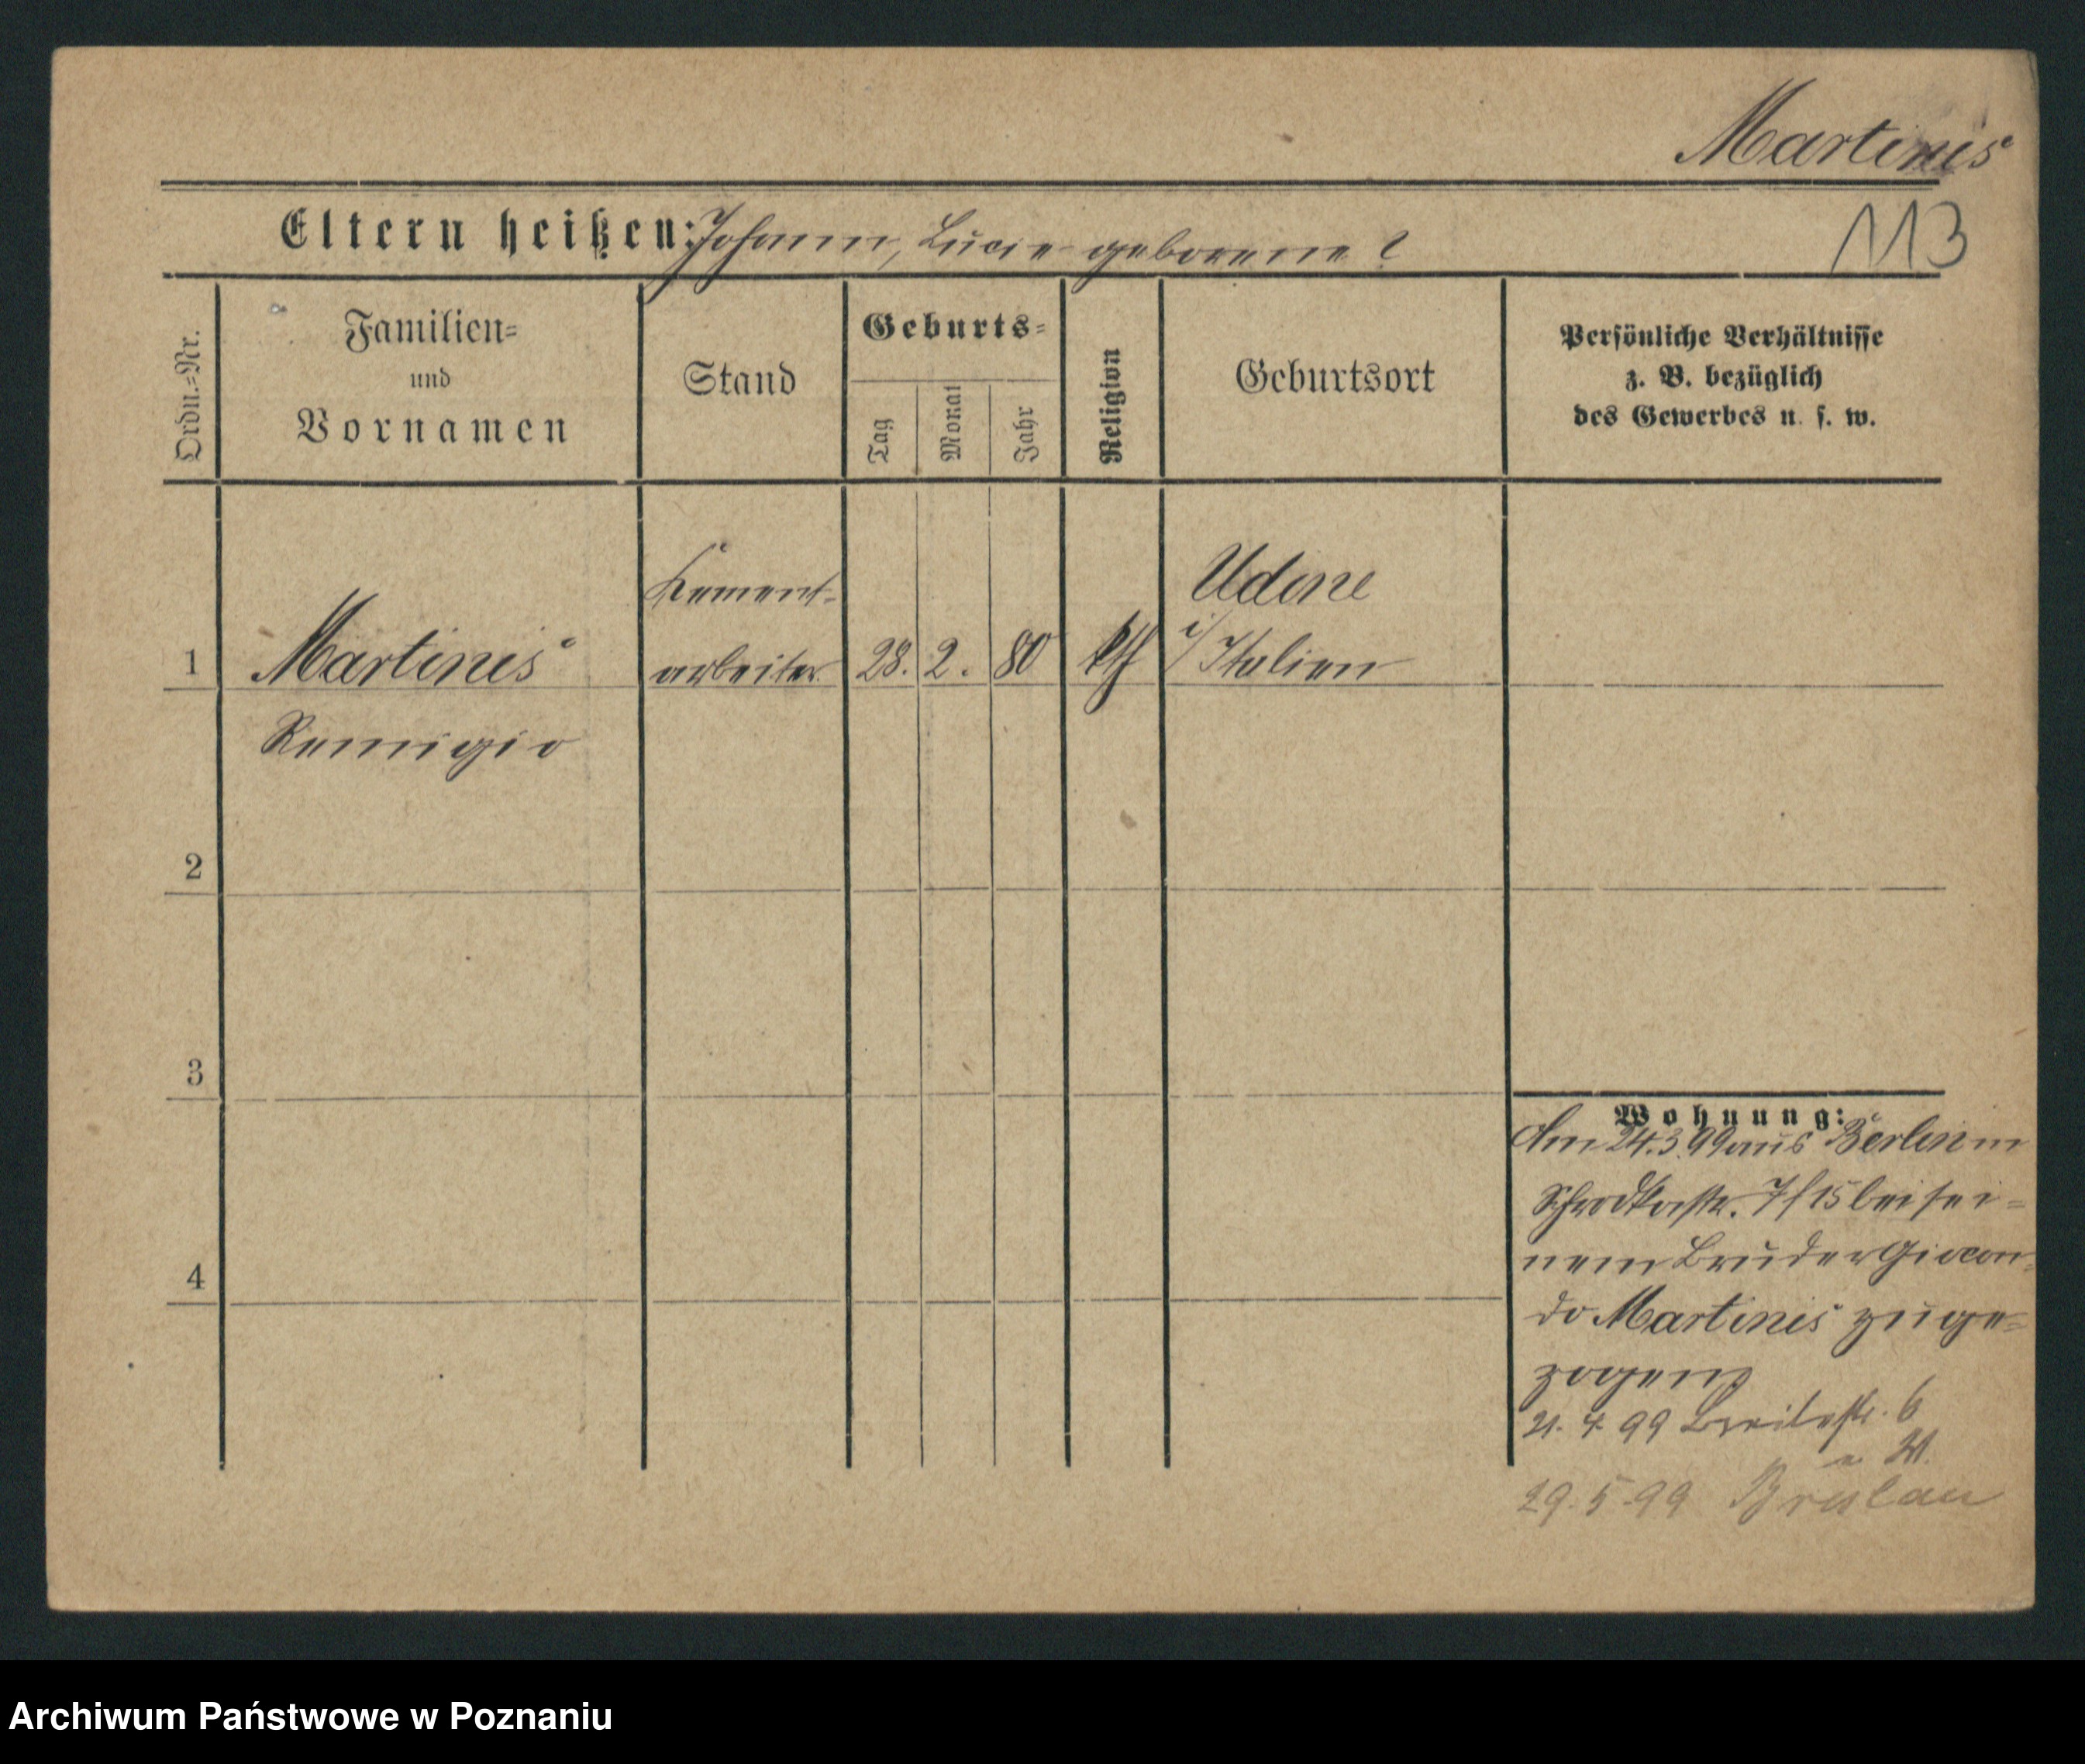 Martinis
Eltern heißen: Johann, Lucie geborene ?
113
Ordn.=Nr.
Familien=
und
Vornamen
Stand
Geburts=
Tag
Monat
Jahr
Religion
Geburtsort
Persönliche Verhältnisse
z. B. bezüglich
des Gewerbes u. s. w.
1
Martinis
Remigio
Zement-
arbeiter
28. 2. 80
kth
Udine
i/Italien
2
3
4
Wohnung:
Am 24.3.99 aus Berlin
Schrodkastr. 7/15 bei sei=
nem Bruder Giocon=
do Martinis zuge=
zogen
21. 4. 99 Breitestr. 6
29. 5. 99 Breslau
Archiwum Państwowe w Poznaniu